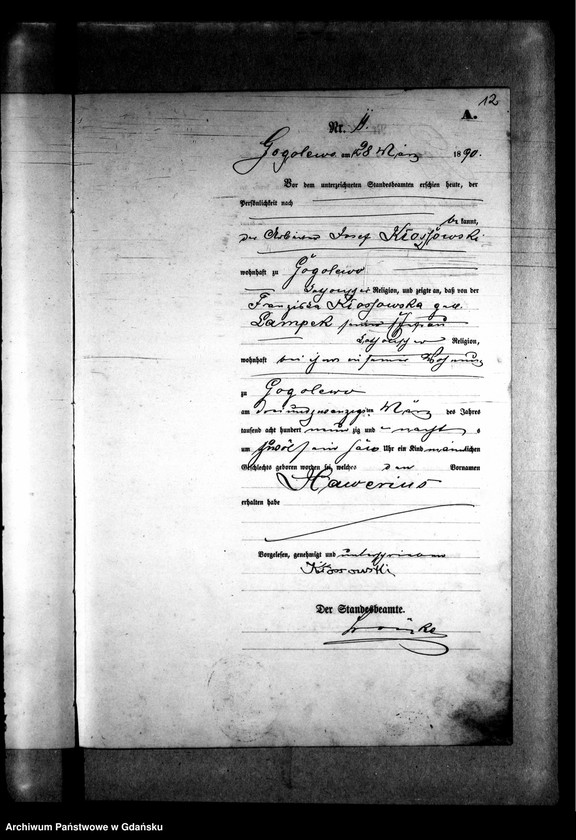 12
A.
Nr. 11.
Gogolewo am 28 März 1890.
Vor dem unterzeichneten Standesbeamten erschien heute, der
Persönlichkeit nach
be kannt,
der Arbeiter Josef Kłossowski
wohnhaft zu Gogolewo
katholischer Religion, und zeigte an, daß von der
Franziska Kłossowska geb.
Lampek seiner Ehefrau
katholischer Religion,
wohnhaft bei ihm in seiner Wohnung
zu Gogolewo
am dreiundzwanzigsten März des Jahres
tausend acht hundert neun zig und nachts
um zwölf ein Uhr ein Kind männlichen
Geschlechts geboren worden sei, welches den Vornamen
Xawerius
erhalten habe
Vorgelesen, genehmigt und unterschrieben
Kłossowski
Der Standesbeamte.
Archiwum Państwowe w Gdańsku